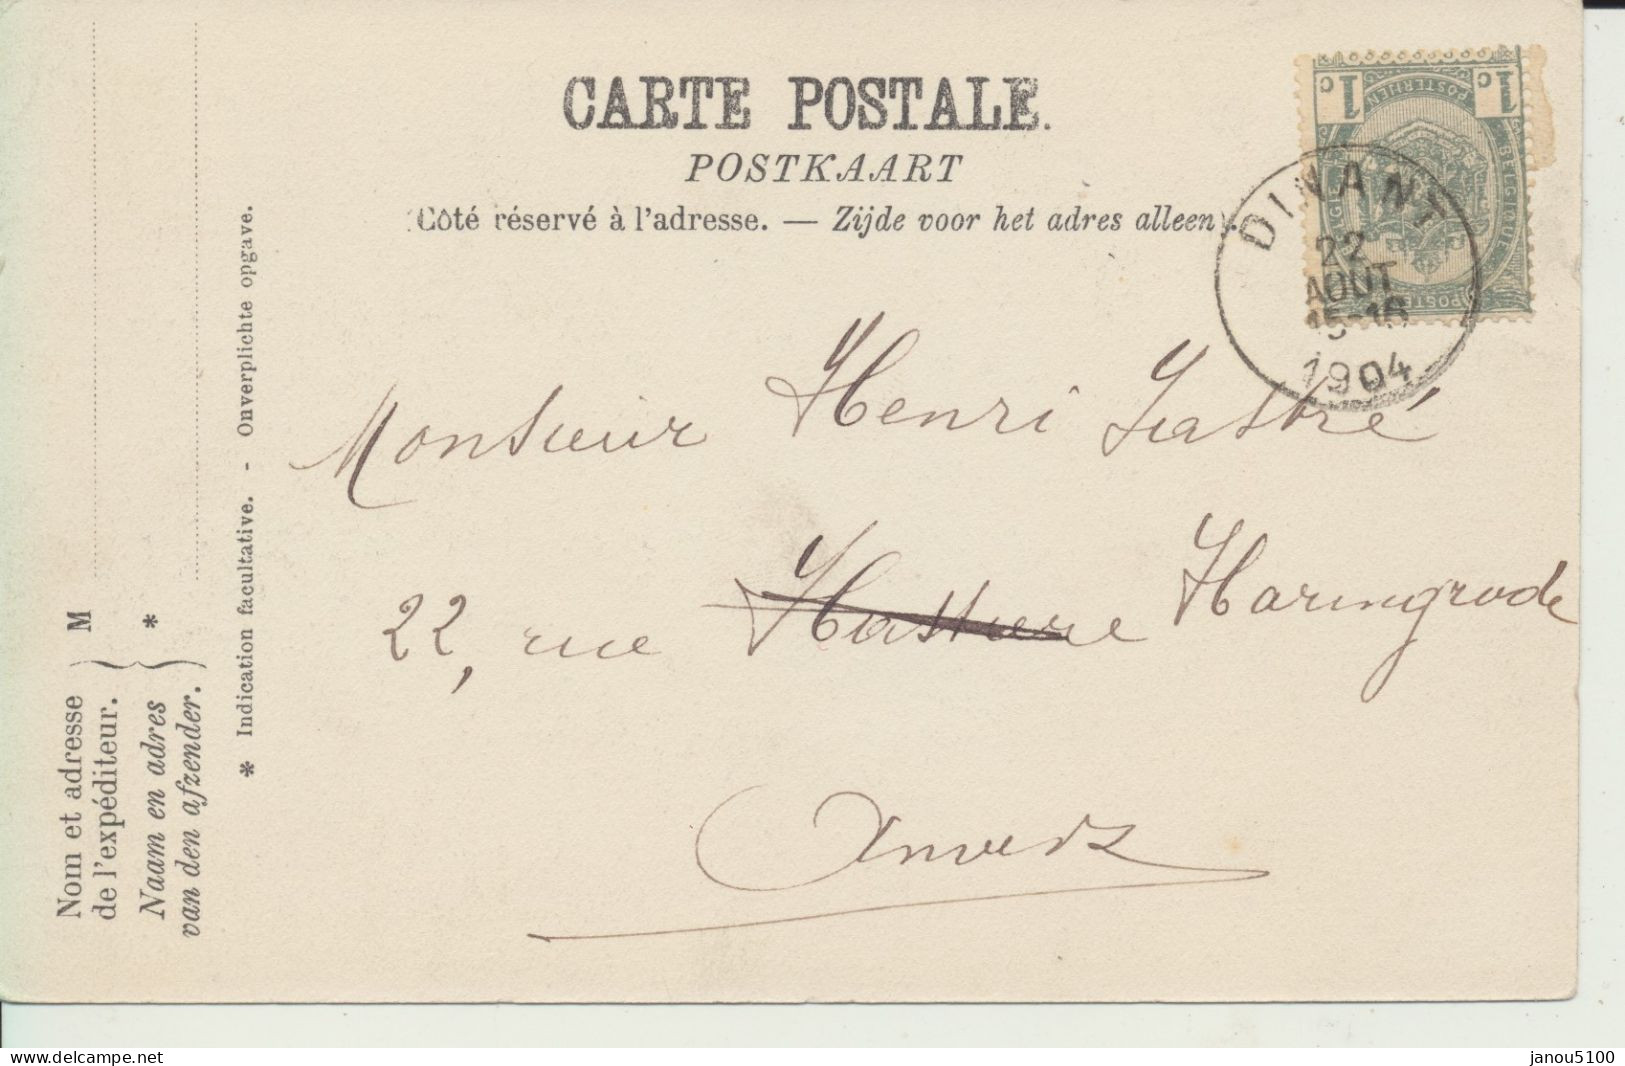 CARTE POSTALE.
POSTKAART
(Côté réservé à l'adresse. — Zijde voor het adres alleen).
1c 1c
DINANT
22
AOUT
15-16
1904
Monsieur Henri Lastré
22, rue Hastiere Haringrode
Anvers
Nom et adresse
de l'expéditeur. } M
Naam en adres
van den afzender. } *
* Indication facultative. - Onverplichte opgave.
www.delcampe.net
janou5100